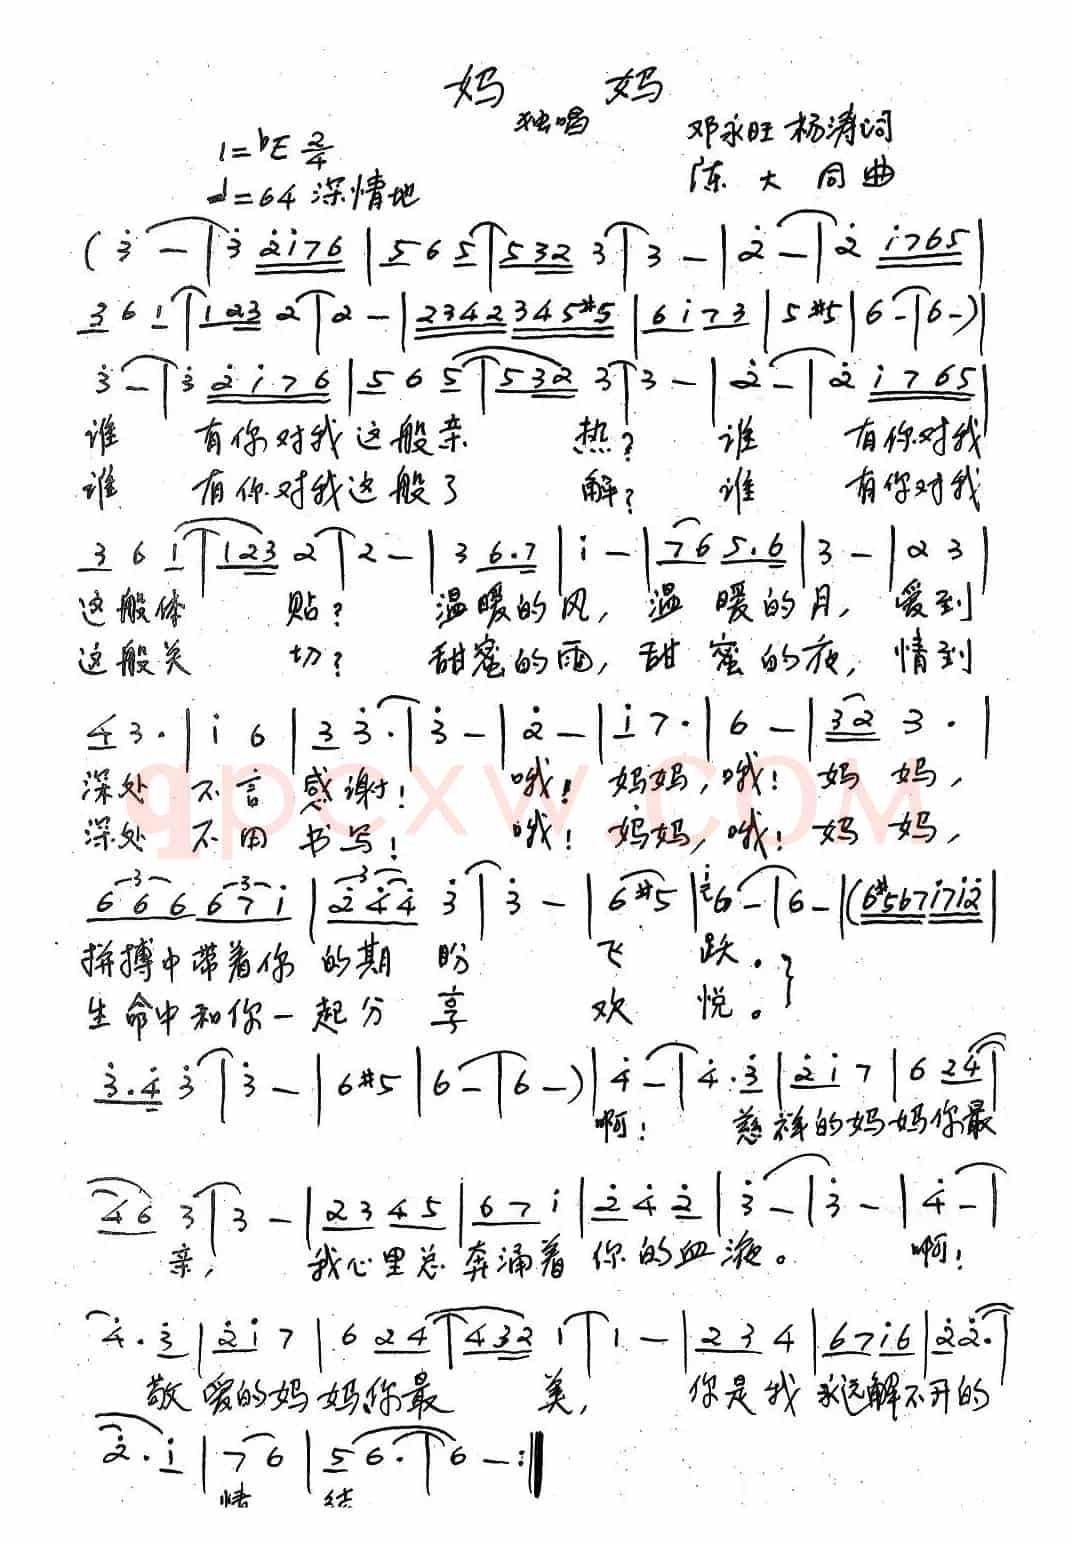 妈 妈
独唱
邓永旺 杨涛词
1=♭E 2/4
陈大同曲
♩=64 深情地
(3̇ - | 3̇ 2̇i76 | 5 6 5 | 532 3 | 3 - | 2̇ - | 2̇ i765 |
3 6 1 | 123 2 | 2 - | 2342 345#5 | 6i73 | 5#5 | 6 - | 6 -) |
3̇ - | 3̇ 2̇i76 | 5 6 5 | 532 3 | 3 - | 2̇ - | 2̇ i765 |
谁 有你对我这般亲 热? 谁 有你对我
谁 有你对我这般了 解? 谁 有你对我
3 6 1 | 123 2 | 2 - | 3 6.7 | i - | 76 5.6 | 3 - | 2 3 |
这般体 贴? 温暖的风, 温 暖的月, 爱到
这般关 切? 甜蜜的雨, 甜 蜜的夜, 情到
4 3. | i 6 | 3 3̇. | 3̇ - | 2̇ - | i 7. | 6 - | 32 3. |
深处 不言 感谢! 哦! 妈妈, 哦! 妈 妈,
深处 不用 书写! 哦! 妈妈, 哦! 妈 妈,
666 67i | 2̇4̇4̇ 3̇ | 3̇ - | 6#5 | i6 - | 6 - | (6#567i7i2̇ |
拼搏中带着你 的期 盼 飞 跃. }
生命中和你一 起分 享 欢 悦。
3̇.4̇ 3̇ | 3̇ - | 6#5 | 6 - | 6 -) | 4̇ - | 4̇.3̇ | 2̇i 7 | 6 24 |
啊! 慈祥的妈妈你最
46 3 | 3 - | 23 45 | 67 i | 2̇ 4̇ 2̇ | 3̇ - | 3̇ - | 4̇ - |
亲, 我心里总奔涌着 你的血液。 啊!
4̇.3̇ | 2̇i 7 | 6 24 | 432 1 | 1 - | 23 4 | 67i6 | 2̇2̇. |
敬爱的妈妈你最 美, 你是我 永远解不开的
2̇.i | 7 6 | 5 6. | 6 - :‖
情 结
qpcxw.com